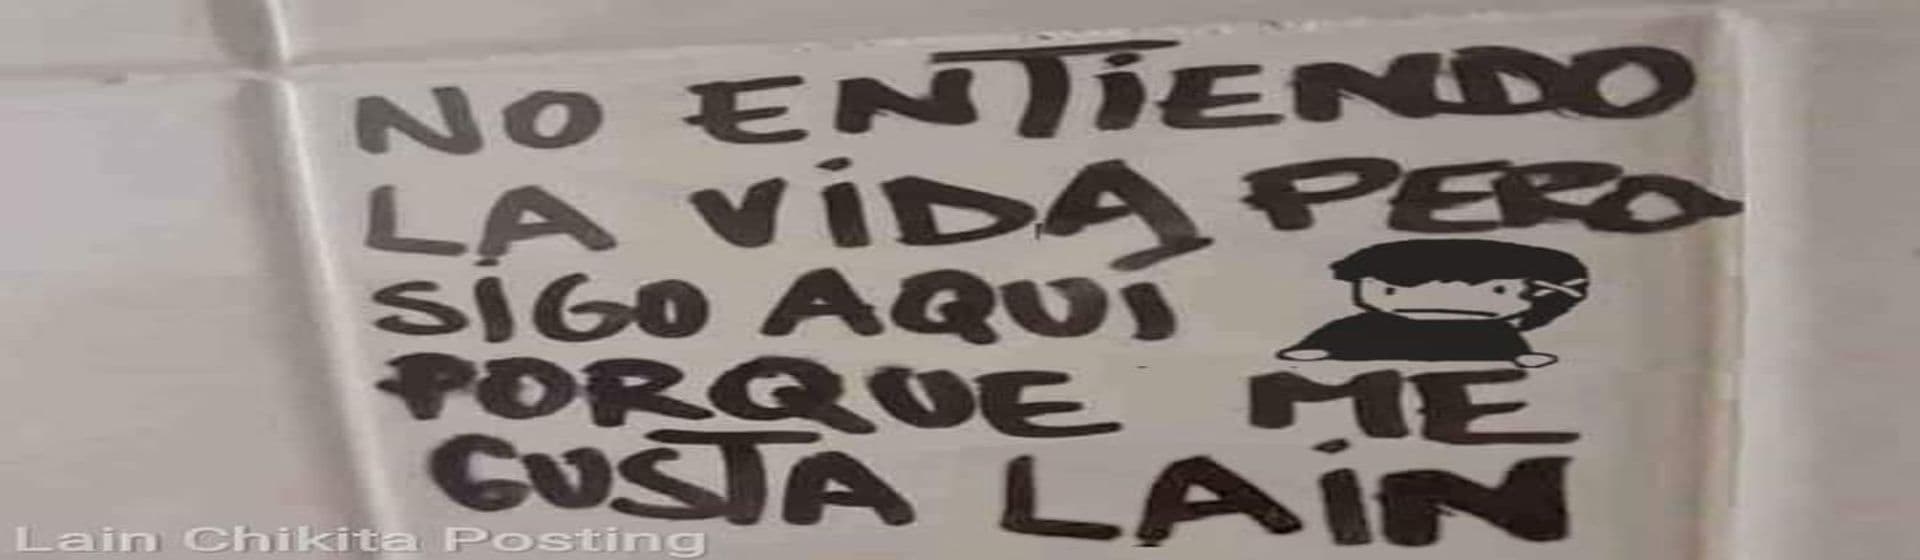 NO ENTiENDO
LA ViDA PERO
SiGO AQUÍ
PORQUE ME
GUSTA LAiN
Lain Chikita Posting